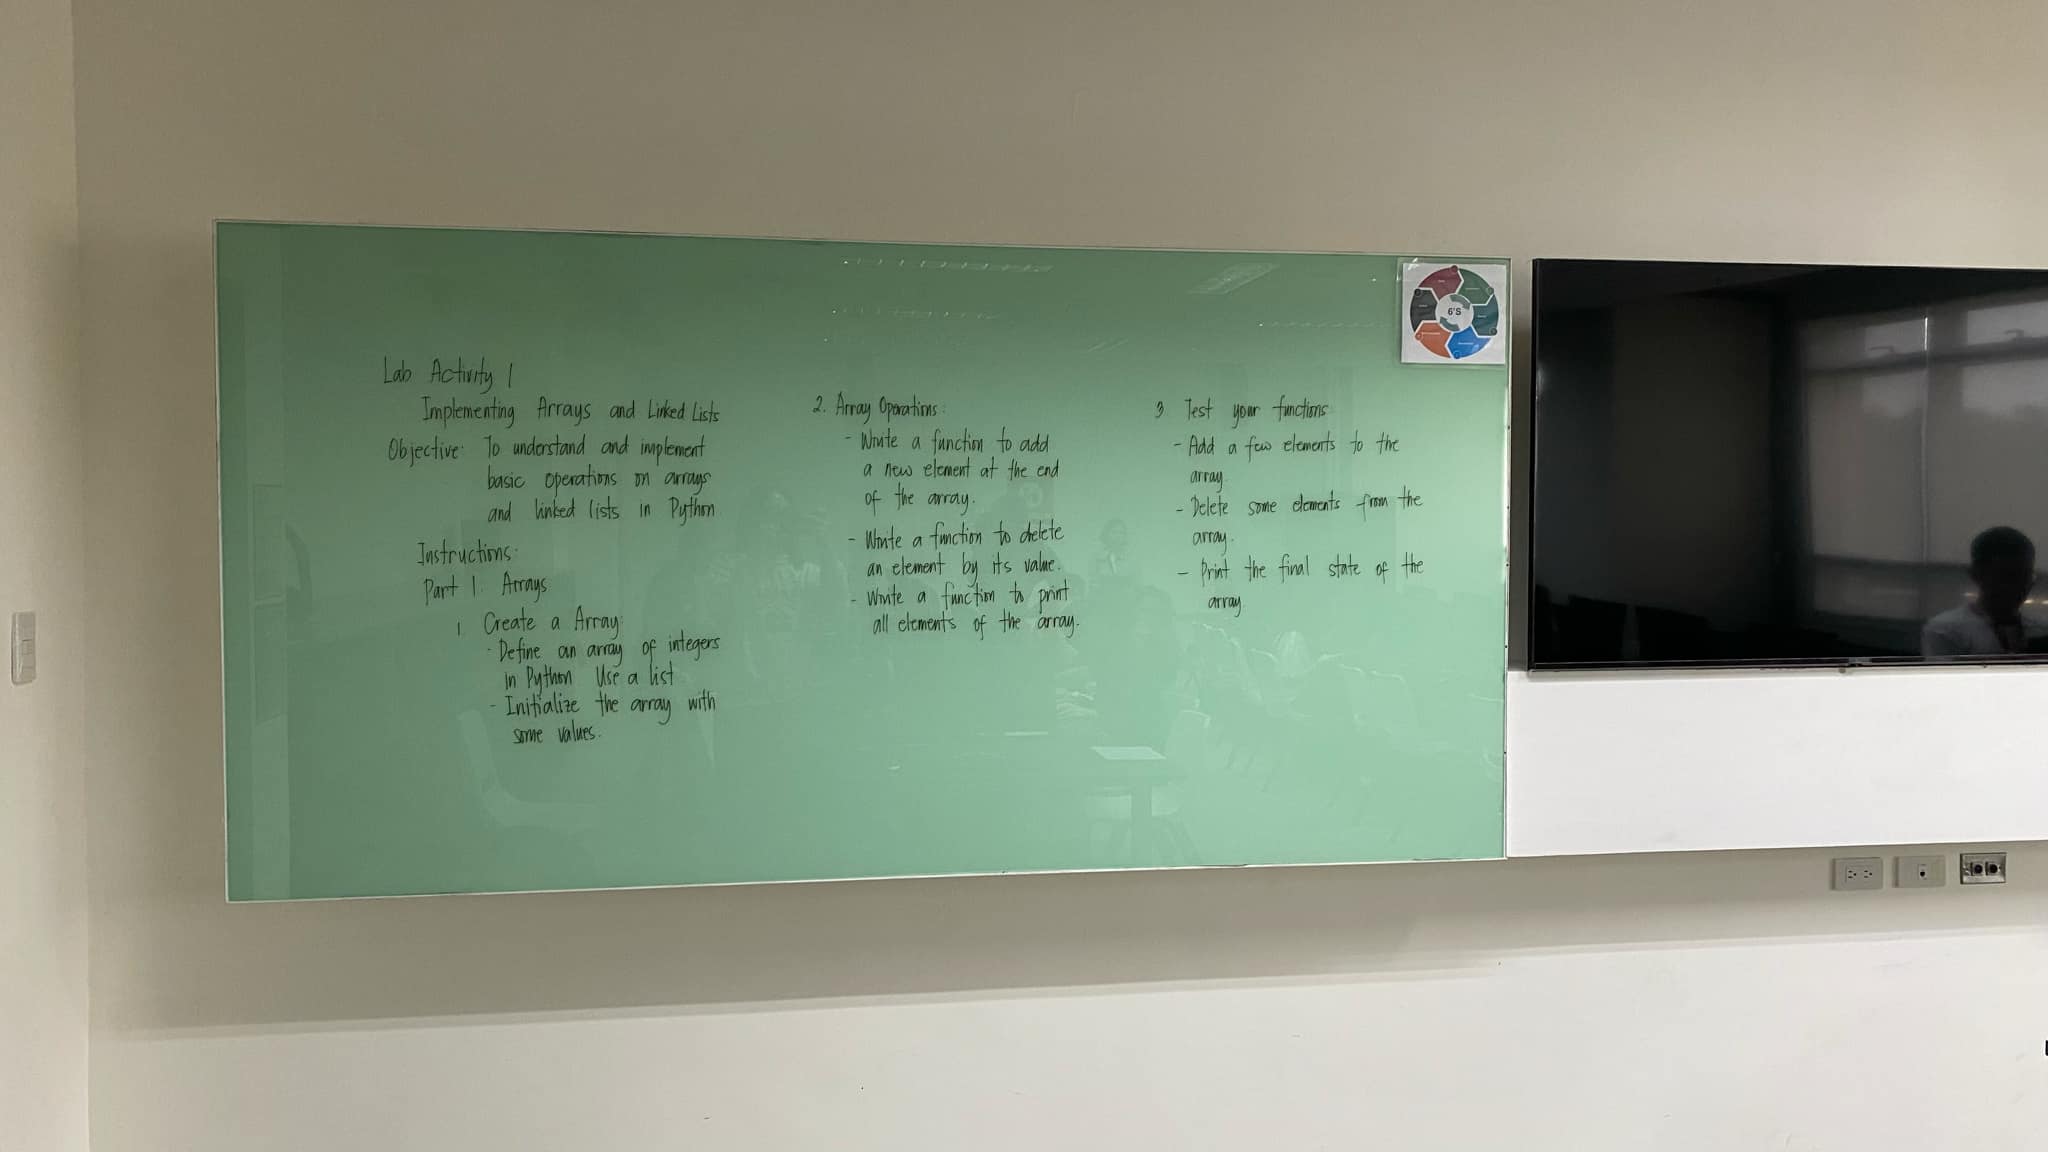 Lab Activity 1
Implementing Arrays and Linked Lists
Objective: To understand and implement
basic operations on arrays
and linked lists in Python
Instructions:
Part 1. Arrays
1. Create a Array:
- Define an array of integers
in Python Use a list
- Initialize the array with
some values.
2. Array Operations:
- Write a function to add
a new element at the end
of the array.
- Write a function to delete
an element by its value.
- Write a function to print
all elements of the array.
3 Test your functions
- Add a few elements to the
array.
- Delete some elements from the
array.
- Print the final state of the
array.
6'S